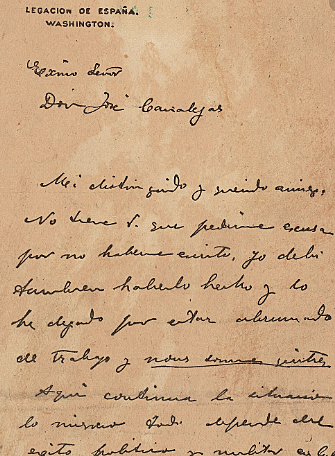 LEGACION DE ESPAÑA.
WASHINGTON.
Exmo Señor
Don José Canalejas
Mi distinguido y querido amigo:
No tiene V. que pedirme excusa
por no haberme escrito, yo debí
tambien haberlo hecho y lo
he dejado por estar abrumado
de trabajo y nous sommes quittes
Aqui continua la situacion
lo mismo todo depende del
exito politico y militar en la